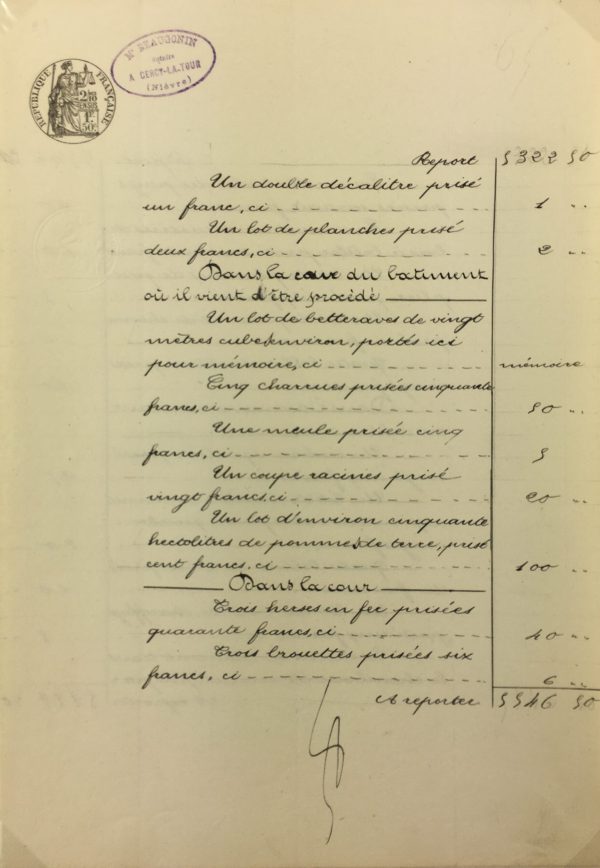 RÉPUBLIQUE FRANÇAISE
2/10 EN SUS
1F.
50c.
Me BEAUGONIN
notaire
A CERCY-LA-TOUR
(Nièvre)
Report 5322 50
Un double décalitre prisé
un franc, ci 1 ..
Un lot de planches prisé
deux francs, ci 2 ..
Dans la cave du bâtiment
où il vient d'être procédé
Un lot de betteraves de vingt
mètres cubes environ, portés ici
pour mémoire, ci mémoire
Cinq charrues prisées cinquante
francs, ci 50 ..
Une meule prisée cinq
francs, ci 5
Un coupe racines prisé
vingt francs, ci 20 ..
Un lot d'environ cinquante
hectolitres de pommes de terre, prisé
cent francs, ci 100 ..
Dans la cour
Trois herses en fer prisées
quarante francs, ci 40 ..
Trois brouettes prisées six
francs, ci 6 ..
A reporter 5546 50